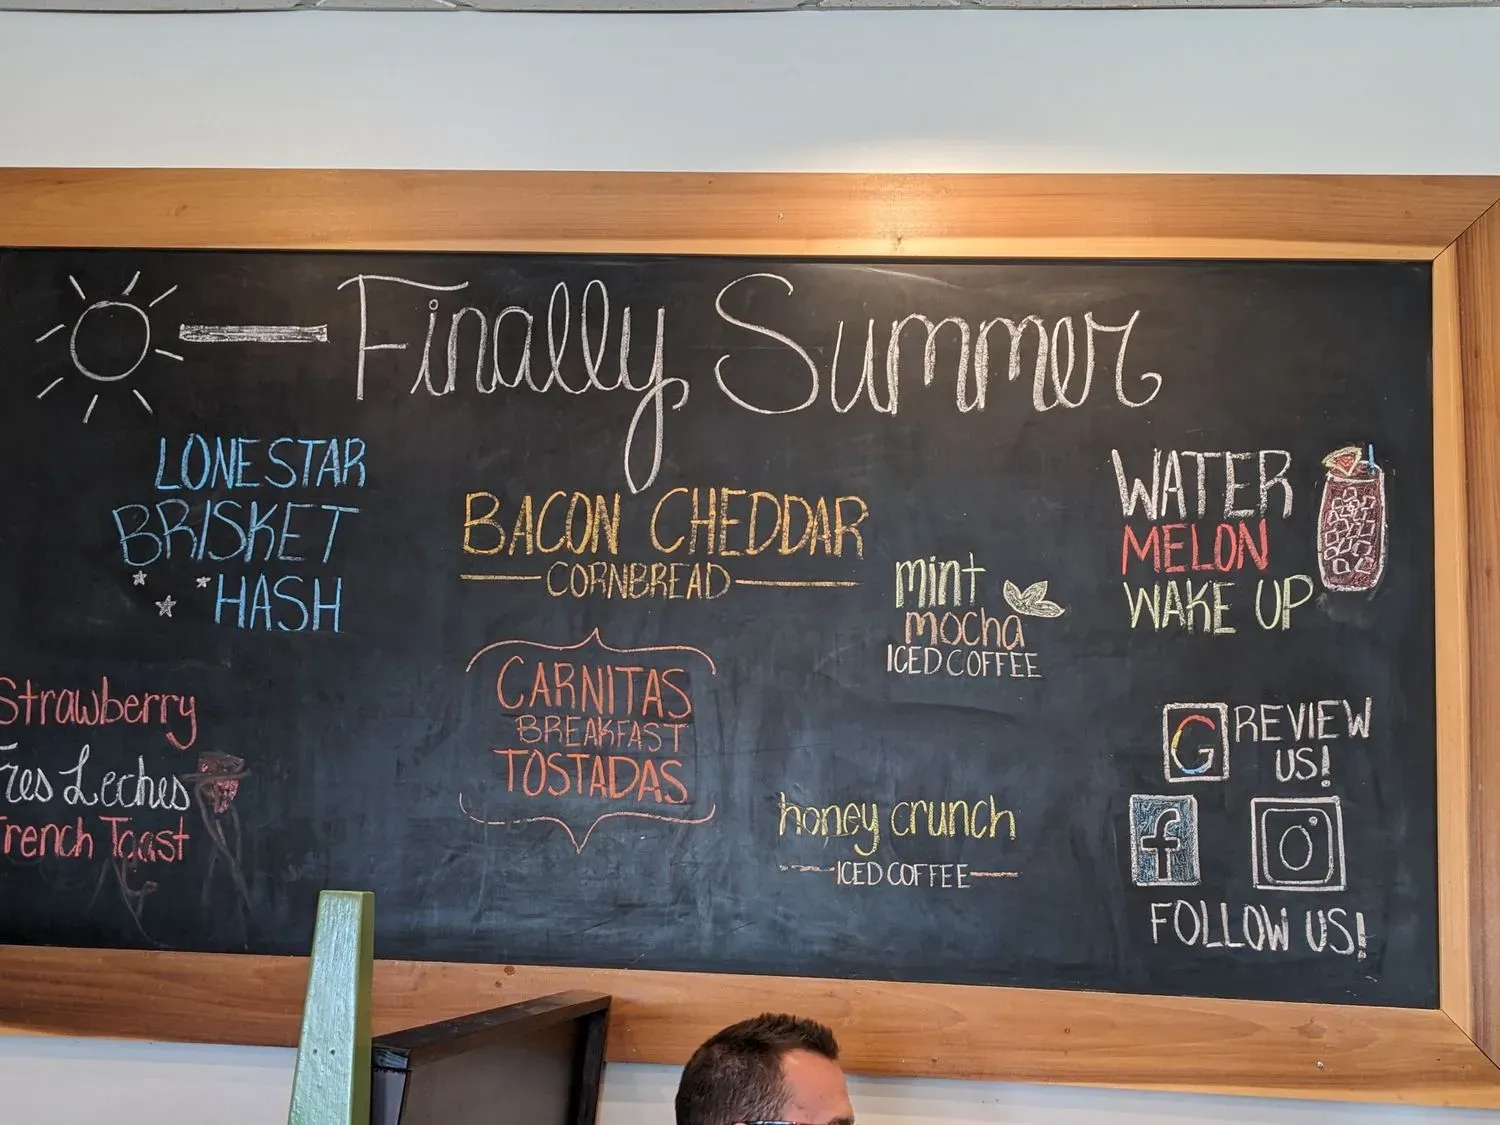 Finally Summer
LONESTAR
BRISKET
HASH
BACON CHEDDAR
CORNBREAD
mint
mocha
ICED COFFEE
WATER
MELON
WAKE UP
Strawberry
Tres Leches
French Toast
CARNITAS
BREAKFAST
TOSTADAS
honey crunch
ICED COFFEE
G REVIEW
US!
f
FOLLOW US!